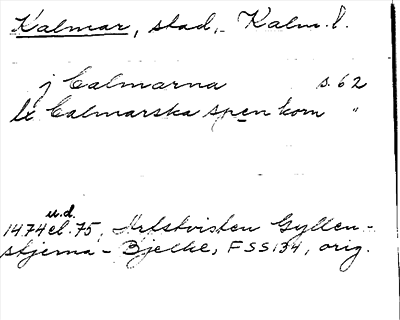 Kalmar, stad, Kalm. l.
j Calmarna s. 62
bx Calmarska spen kom "
u.d.
1474 el. 75, Arvstvisten Gyllen-
stjerna - Bjelke, FSS 134, orig.